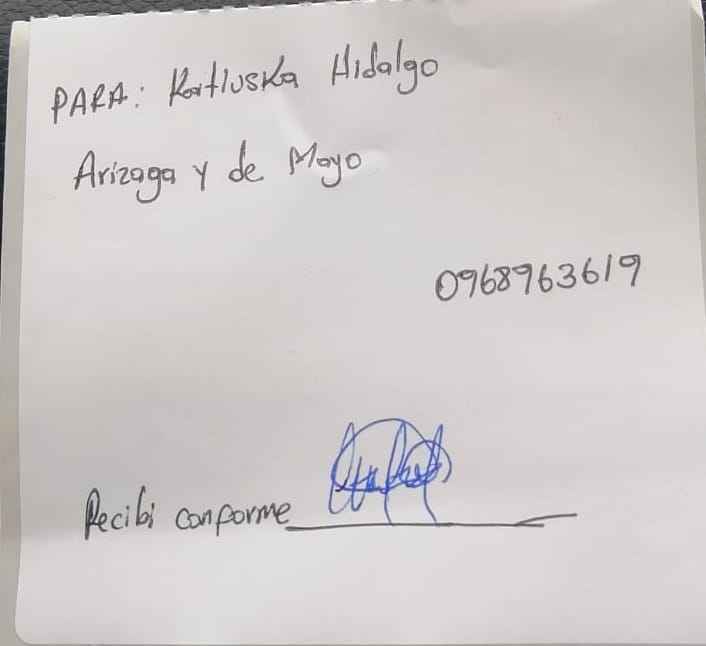 PARA: Katiuska Hidalgo
Arizaga y de Mayo
0968963619
Recibi conforme